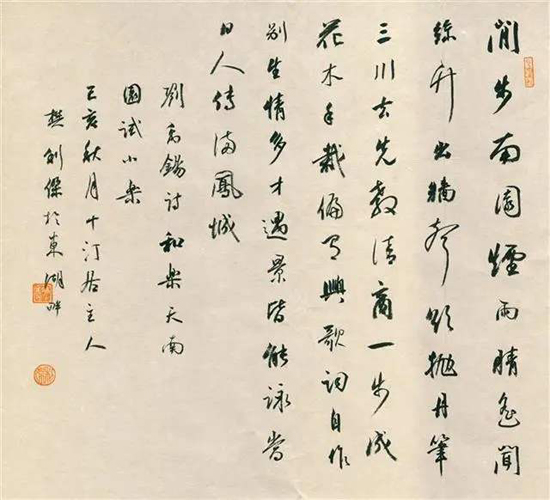 閒步南園煙雨晴遙聞
絲竹出牆聲欲拋丹筆
三川去先教清商一步成
花木手栽偏有興歌詞自作
別生情多才遇景皆能詠當
日人傳滿鳳城
劉禹錫詩和樂天南
園試小樂
己亥秋月十汀居主人
樊利傑於東湖畔